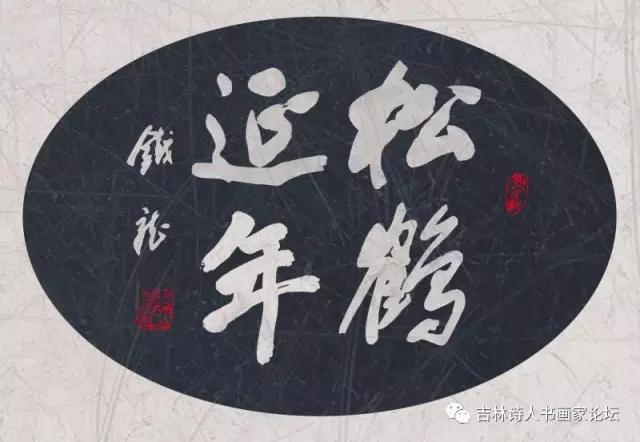 松鹤
延年
鐵龙
吉林诗人书画家论坛